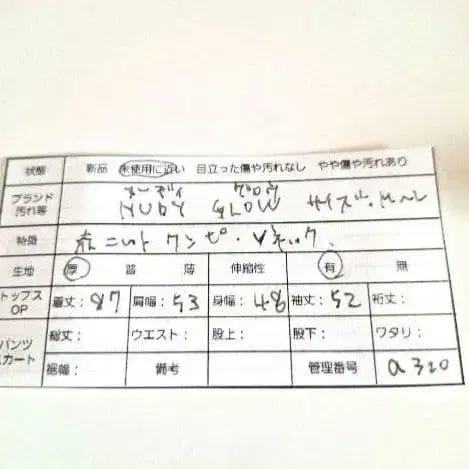 状態 新品 未使用に近い 目立った傷や汚れなし やや傷や汚れあり
ヌーディ グロウ
ブランド 汚れ等 NUDY GLOW サイズ
特徴 赤ニット ワンピ・Vネック
生地 厚 普 薄 伸縮性 有 無
トップス OP 着丈:87 肩幅:53 身幅:48 袖丈:52 裄丈:
パンツ スカート 総丈: ウエスト: 股上: 股下: ワタリ:
裾幅: 備考 管理番号 a320